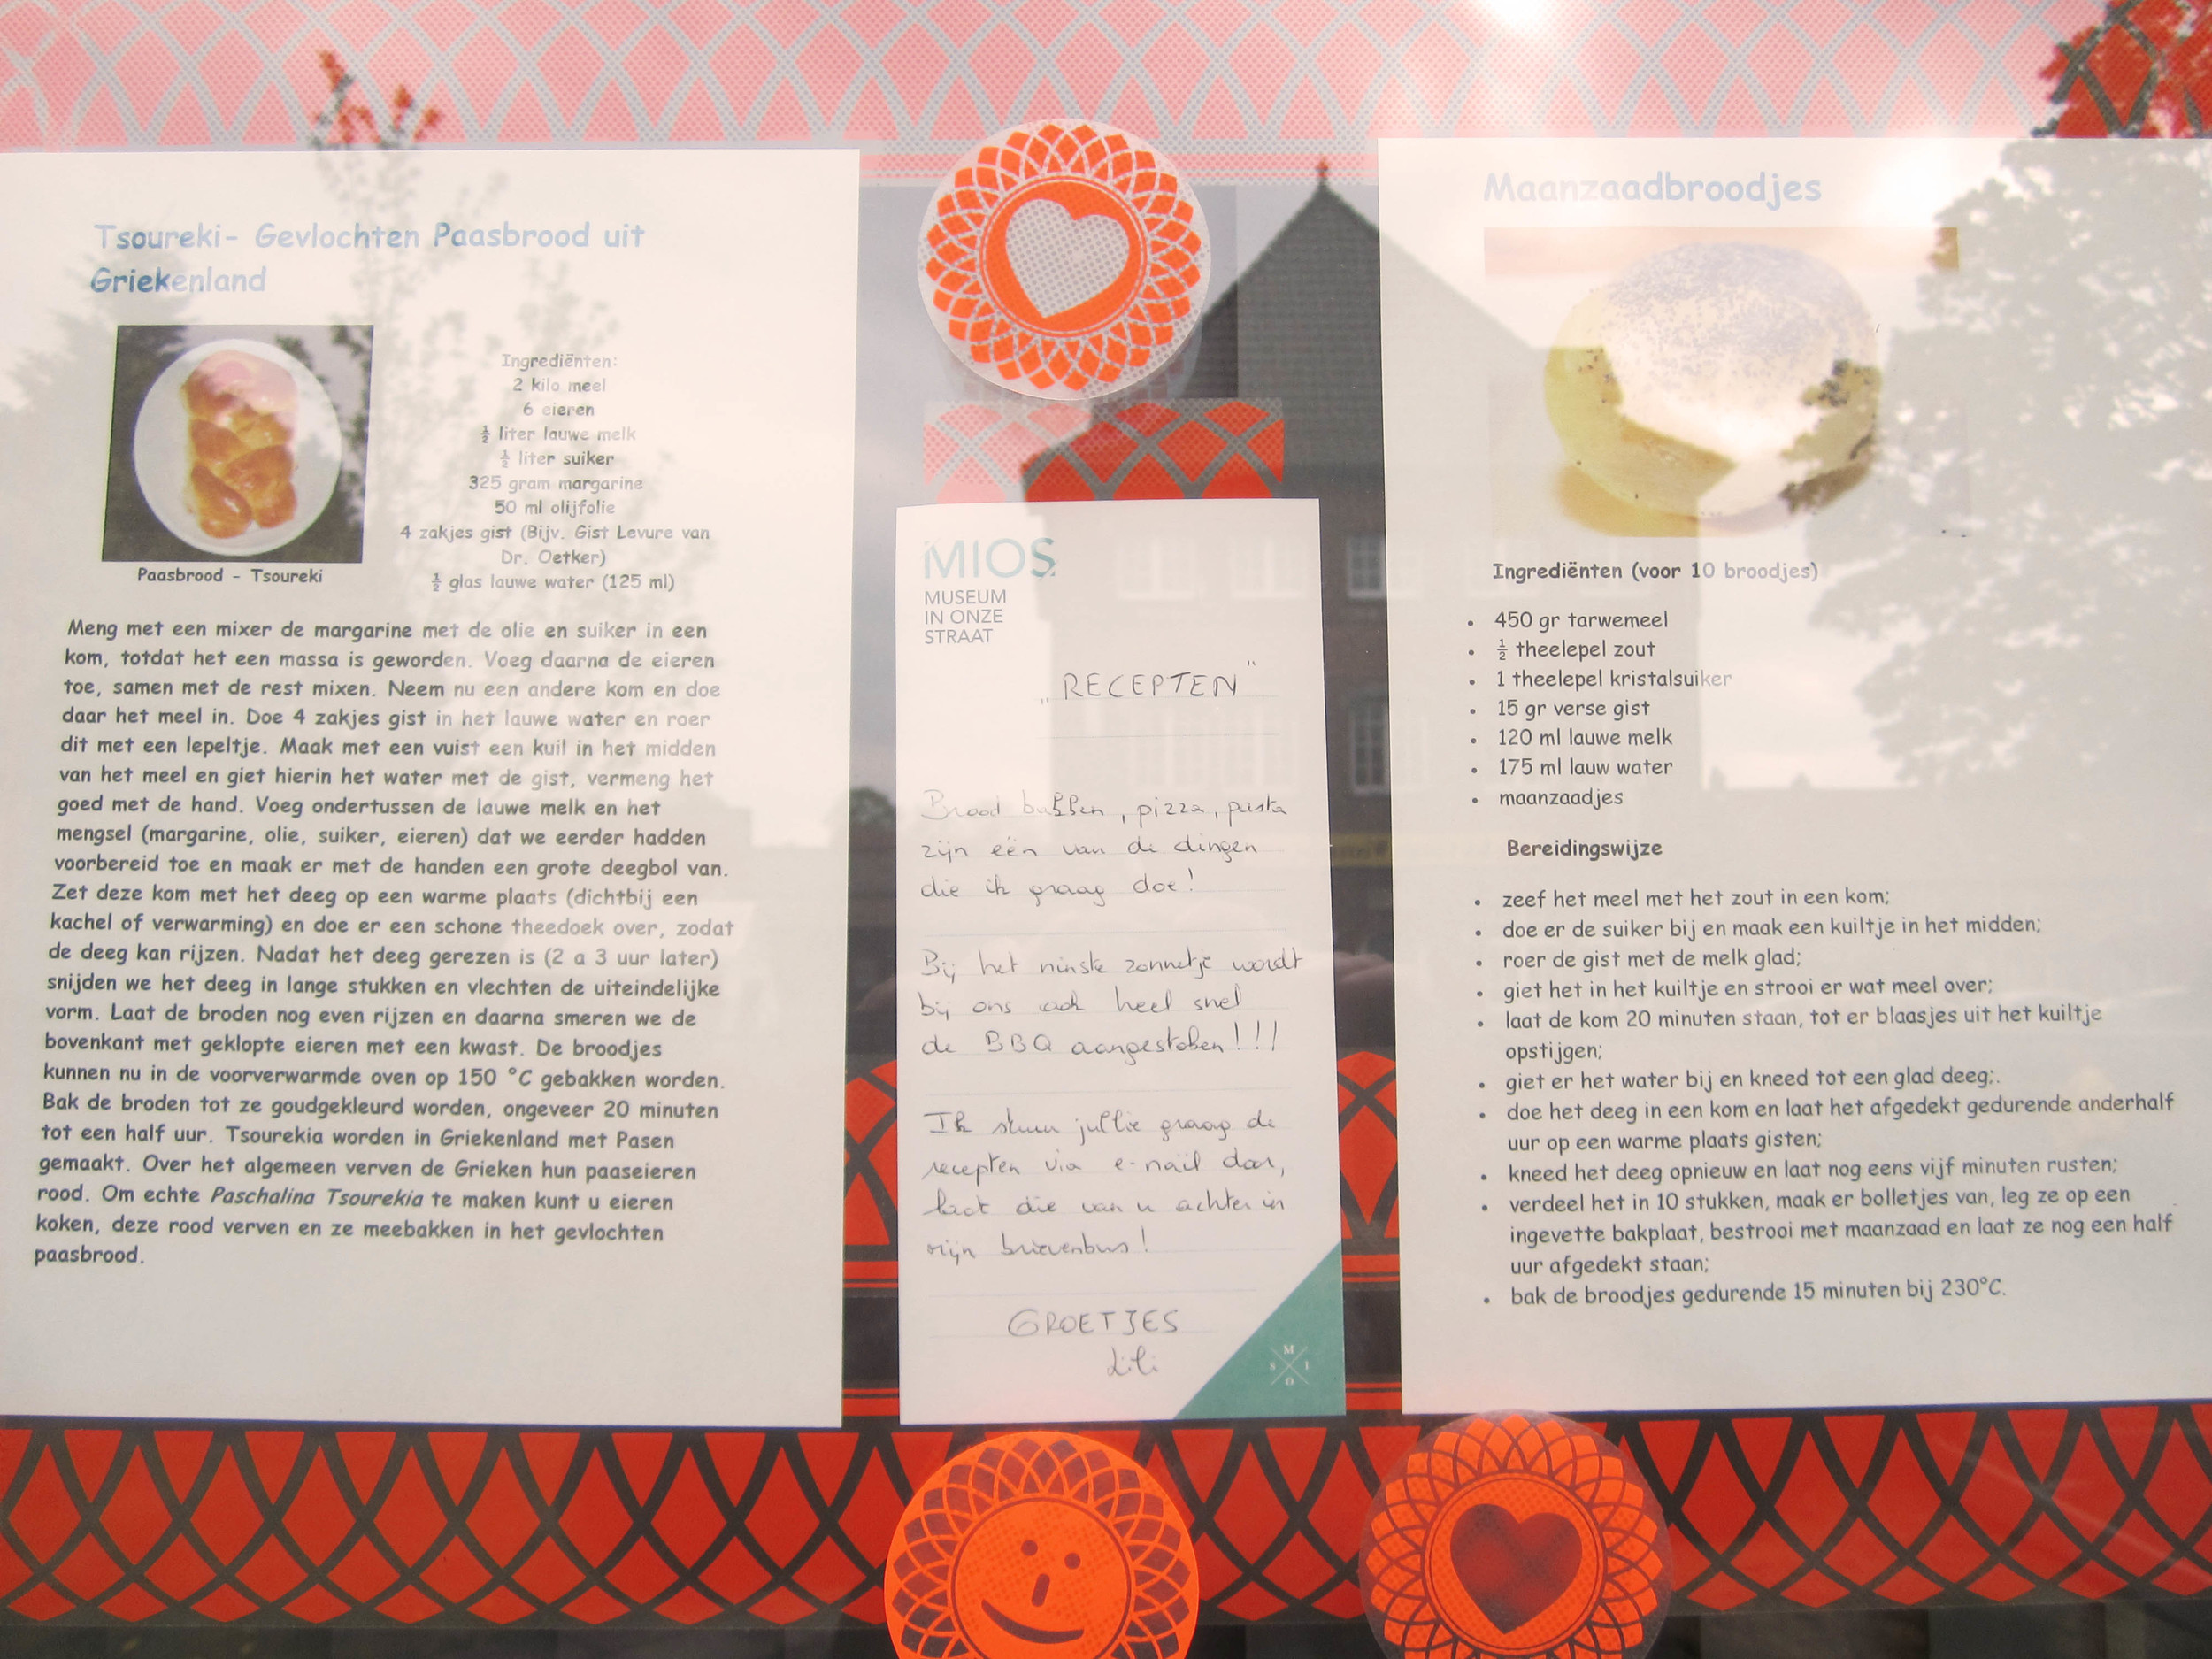 Tsoureki- Gevlochten Paasbrood uit
Griekenland
Ingrediënten:
2 kilo meel
6 eieren
½ liter lauwe melk
½ liter suiker
325 gram margarine
50 ml olijfolie
4 zakjes gist (Bijv. Gist Levure van
Dr. Oetker)
½ glas lauwe water (125 ml)
Paasbrood - Tsoureki
Meng met een mixer de margarine met de olie en suiker in een
kom, totdat het een massa is geworden. Voeg daarna de eieren
toe, samen met de rest mixen. Neem nu een andere kom en doe
daar het meel in. Doe 4 zakjes gist in het lauwe water en roer
dit met een lepeltje. Maak met een vuist een kuil in het midden
van het meel en giet hierin het water met de gist, vermeng het
goed met de hand. Voeg ondertussen de lauwe melk en het
mengsel (margarine, olie, suiker, eieren) dat we eerder hadden
voorbereid toe en maak er met de handen een grote deegbol van.
Zet deze kom met het deeg op een warme plaats (dichtbij een
kachel of verwarming) en doe er een schone theedoek over, zodat
de deeg kan rijzen. Nadat het deeg gerezen is (2 a 3 uur later)
snijden we het deeg in lange stukken en vlechten de uiteindelijke
vorm. Laat de broden nog even rijzen en daarna smeren we de
bovenkant met geklopte eieren met een kwast. De broodjes
kunnen nu in de voorverwarmde oven op 150 °C gebakken worden.
Bak de broden tot ze goudgekleurd worden, ongeveer 20 minuten
tot een half uur. Tsourekia worden in Griekenland met Pasen
gemaakt. Over het algemeen verven de Grieken hun paaseieren
rood. Om echte Paschalina Tsourekia te maken kunt u eieren
koken, deze rood verven en ze meebakken in het gevlochten
paasbrood.
MIOS
MUSEUM
IN ONZE
STRAAT
"RECEPTEN"
Brood bakken, pizza, pasta
zijn eën van de dingen
die ik graag doe!
Bij het minste zonnetje wordt
bij ons ook heel snel
de BBQ aangestoken!!!
Ik stuur jullie graag de
recepten via e-mail door,
laat die van u achter in
mijn brievenbus!
GROETJES
Lili
M
S I
O
Maanzaadbroodjes
Ingrediënten (voor 10 broodjes)
• 450 gr tarwemeel
• ½ theelepel zout
• 1 theelepel kristalsuiker
• 15 gr verse gist
• 120 ml lauwe melk
• 175 ml lauw water
• maanzaadjes
Bereidingswijze
• zeef het meel met het zout in een kom;
• doe er de suiker bij en maak een kuiltje in het midden;
• roer de gist met de melk glad;
• giet het in het kuiltje en strooi er wat meel over;
• laat de kom 20 minuten staan, tot er blaasjes uit het kuiltje
opstijgen;
• giet er het water bij en kneed tot een glad deeg;.
• doe het deeg in een kom en laat het afgedekt gedurende anderhalf
uur op een warme plaats gisten;
• kneed het deeg opnieuw en laat nog eens vijf minuten rusten;
• verdeel het in 10 stukken, maak er bolletjes van, leg ze op een
ingevette bakplaat, bestrooi met maanzaad en laat ze nog een half
uur afgedekt staan;
• bak de broodjes gedurende 15 minuten bij 230°C.